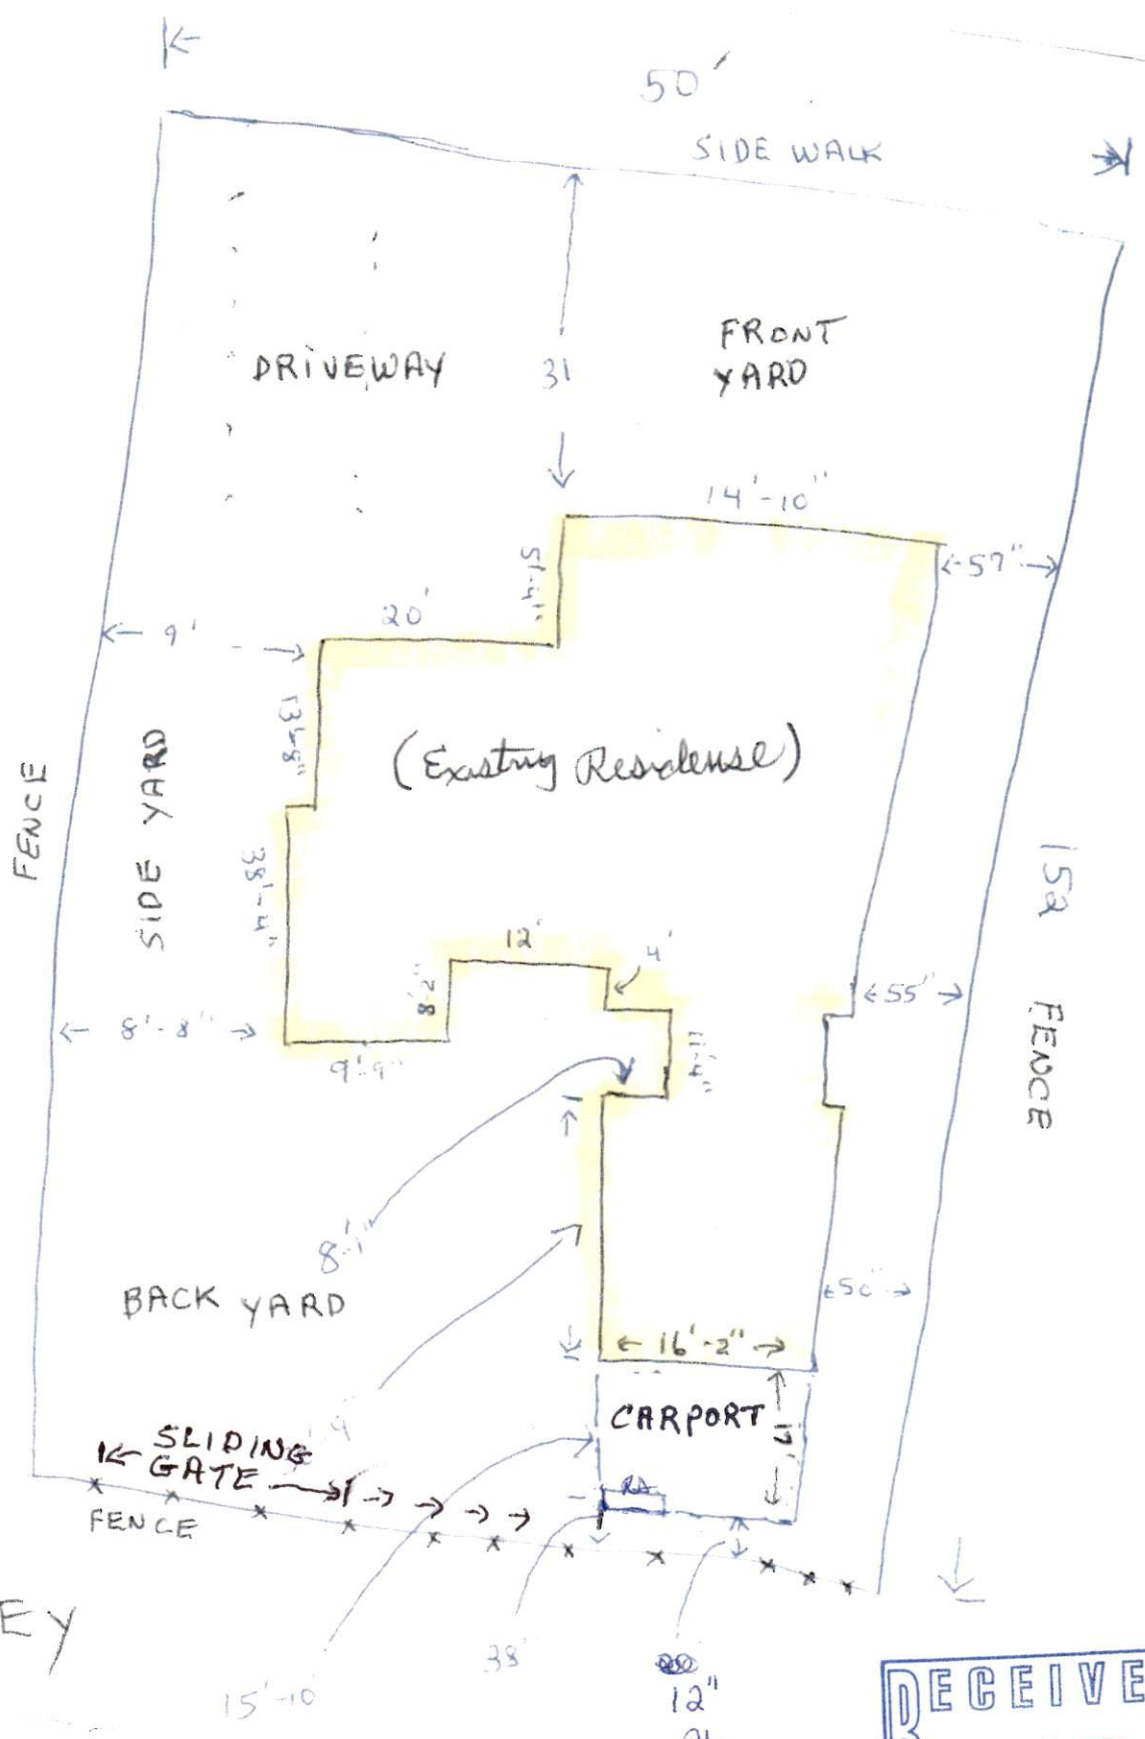 50'
SIDE WALK
DRIVEWAY
31
FRONT
YARD
14'-10"
57"
5'-4"
20'
9'
13'-8"
(Existing Residense)
FENCE
SIDE YARD
38'-4"
152
12'
4'
8'-2"
55"
8'-8"
9'-9"
11'-4"
FENCE
8'-1"
BACK YARD
16'-2"
CARPORT
17'
SLIDING
GATE
FENCE
EY
38'
15'-10
12"
RECEIVE